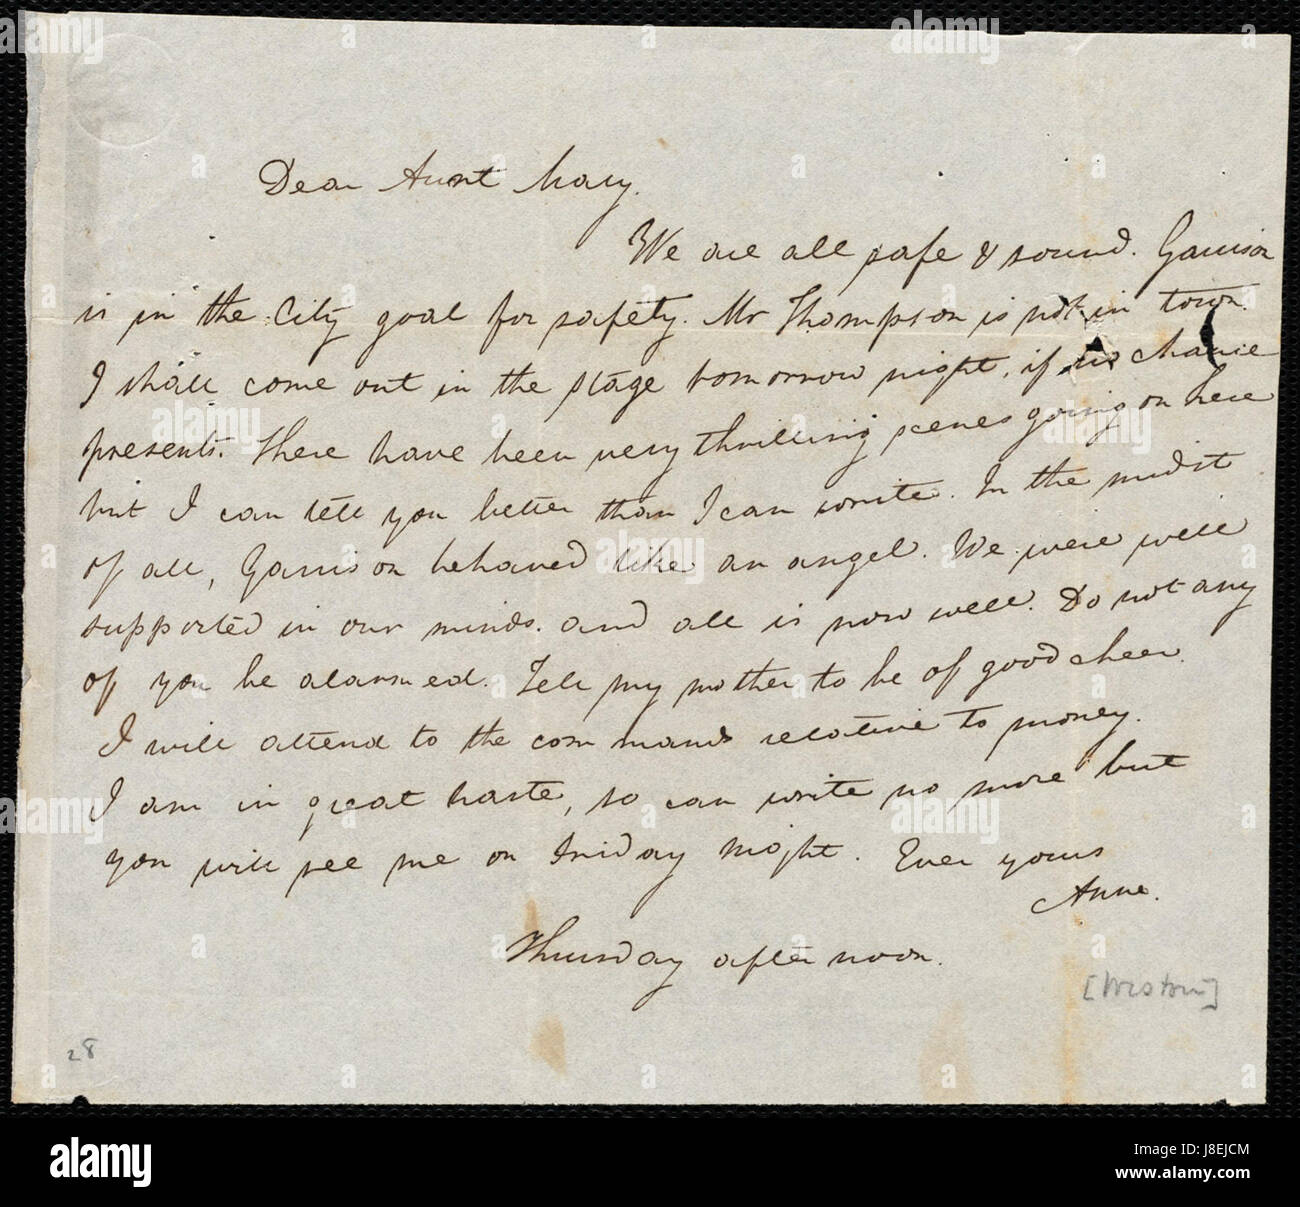 Dear Aunt Mary.
We are all safe & sound. Garrison
is in the City goal for safety. Mr Thompson is not in town.
I shall come out in the stage tomorrow night, if no chance
presents. There have been very thrilling scenes going on here
but I can tell you better than I can write. In the midst
of all, Garrison behaved like an angel. We were well
supported in our minds. and all is now well. Do not any
of you be alarmed. Tell my mother to be of good cheer.
I will attend to the commands relative to money.
I am in great haste, so can write no more but
you will see me on Friday night. Ever yours
Anne.
Thursday afternoon.
[Weston]
28
alamy
Image ID: J8EJCM
www.alamy.com